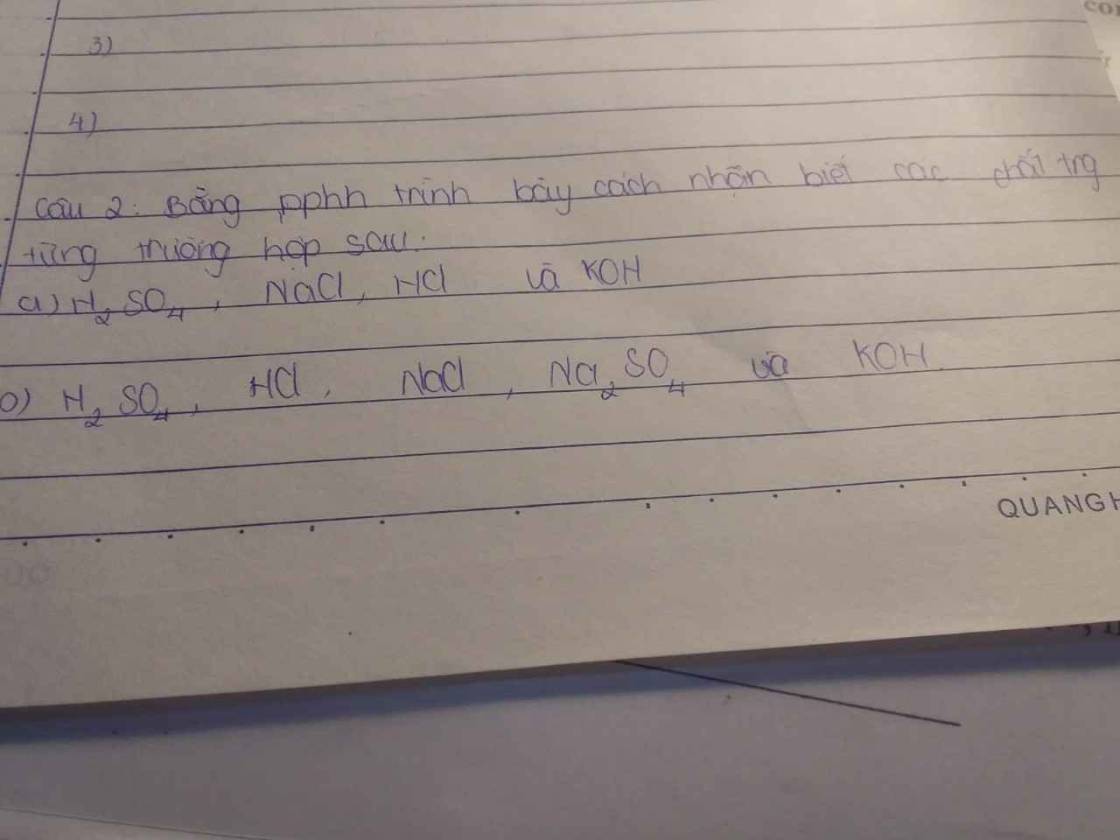 3)
4)
Câu 2: Bằng pphh trình bày cách nhận biết các chất trg
từng trường hợp sau:
a) H₂SO₄, NaCl, HCl và KOH
b) H₂SO₄, HCl, NaCl, Na₂SO₄ và KOH.
QUANGH